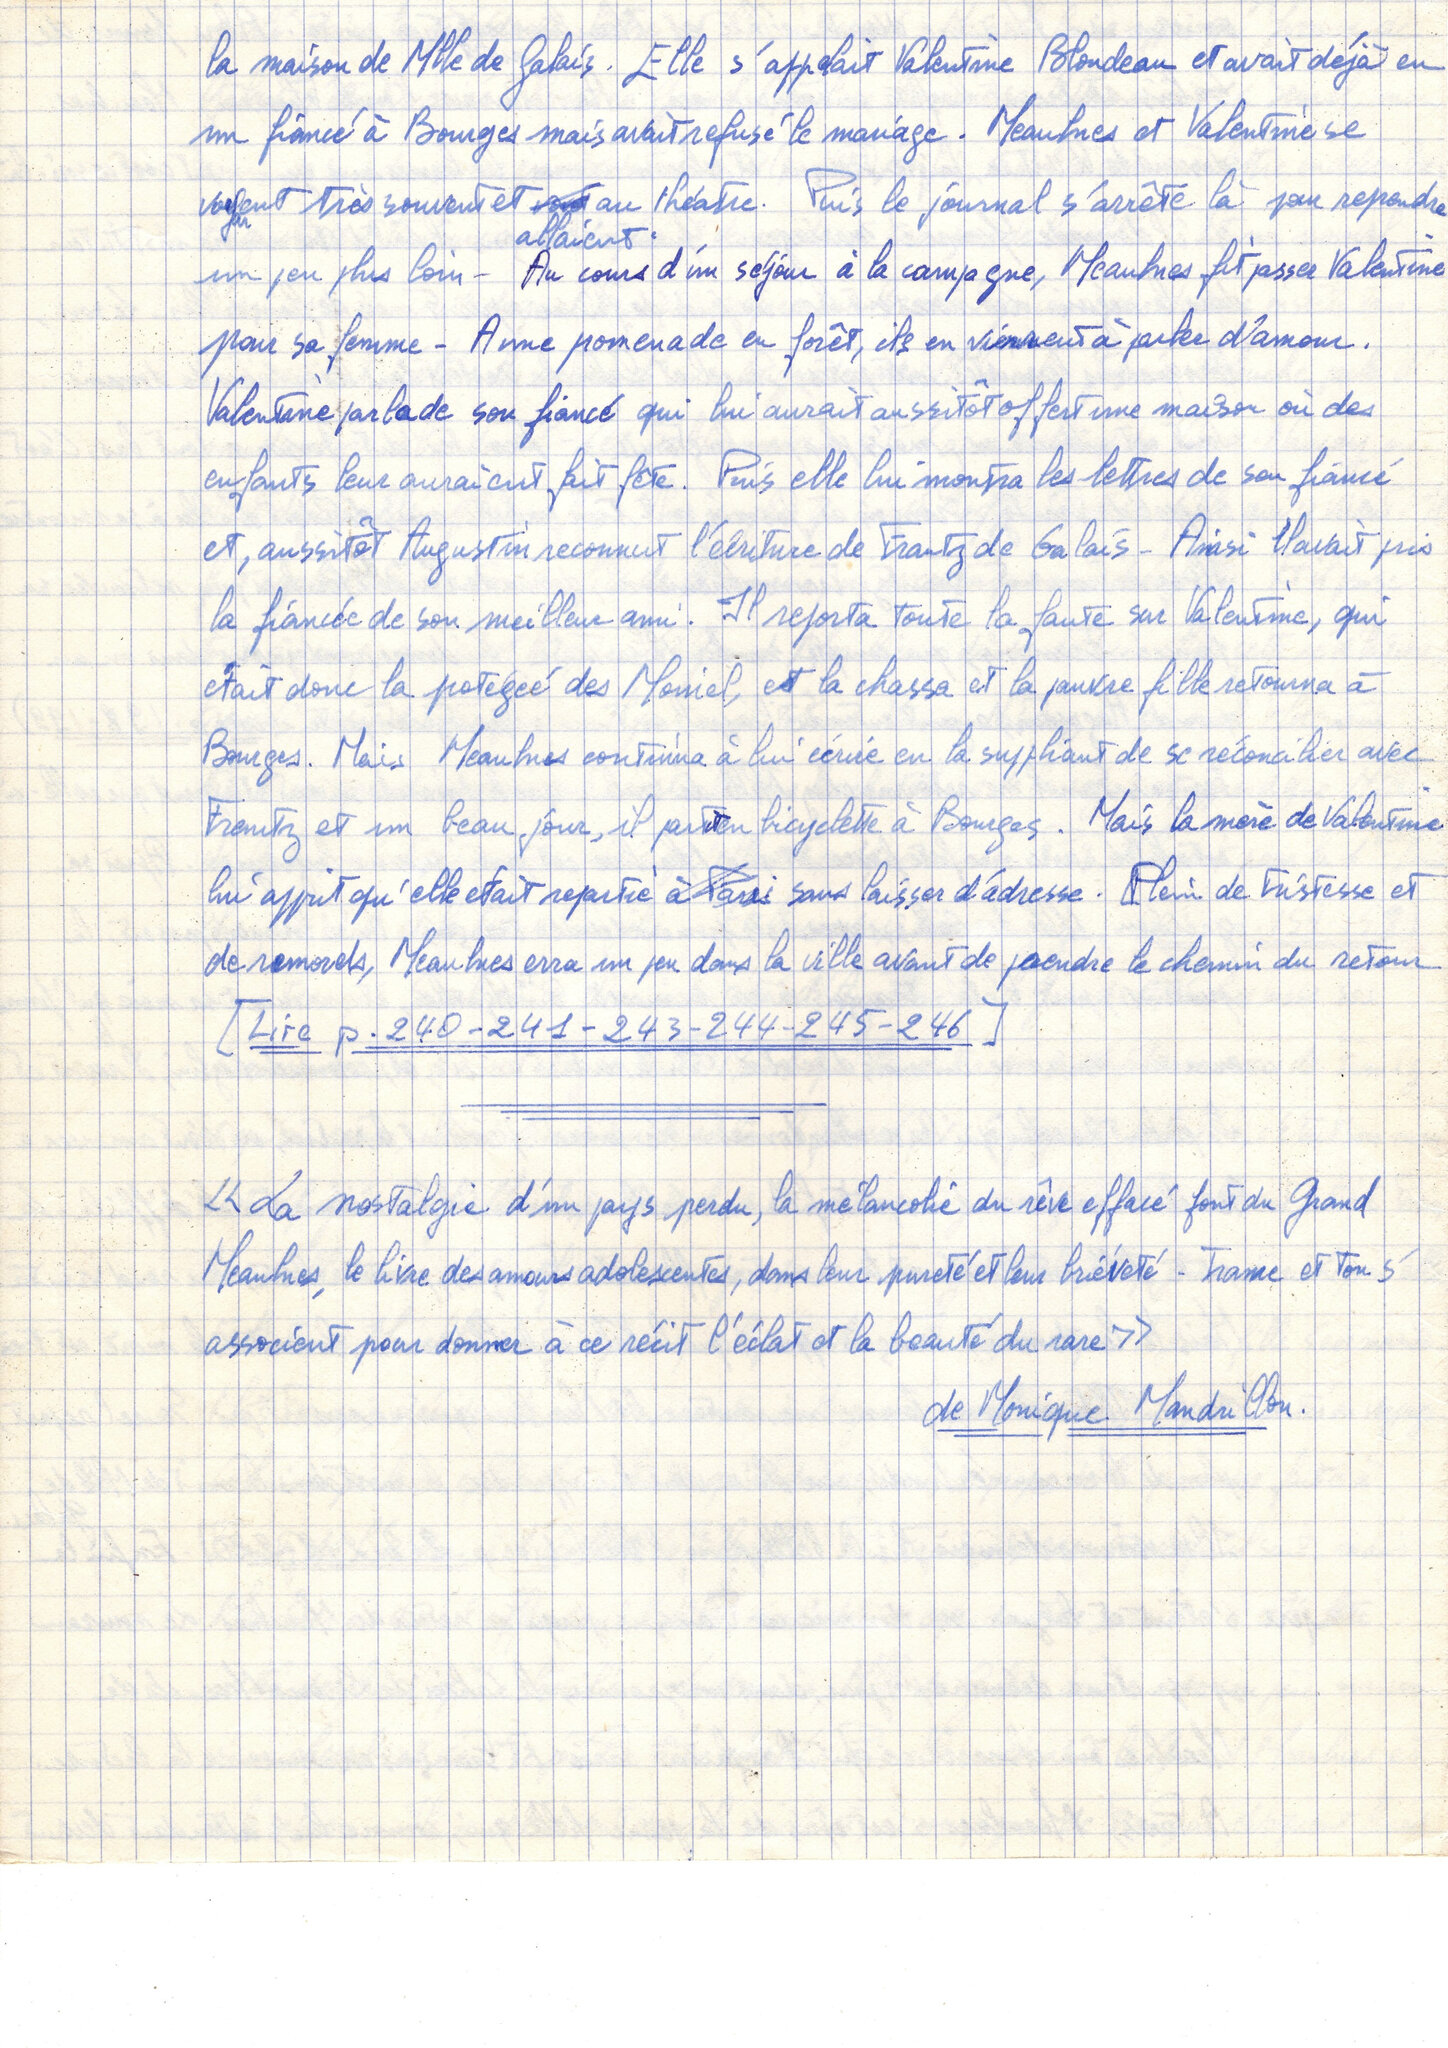 la maison de Mlle de Galais. Elle s'appelait Valentine Blondeau et avait déjà eu
un fiancé à Bourges mais avait refusé le mariage. Meaulnes et Valentine se
très souvent et au théatre. Puis le journal s'arrête là pour reprendre
allaient
un peu plus loin - Au cours d'un séjour à la campagne, Meaulnes fit passer Valentine
pour sa femme - A une promenade en forêt, ils en viennent à parler d'amour.
Valentine parla de son fiancé qui lui aurait aussitôt offert une maison où des
enfants leur auraient fait fête. Puis elle lui montra les lettres de son fiancé
et, aussitôt Augustin reconnut l'écriture de Frantz de Galais - Ainsi il avait pris
la fiancée de son meilleur ami. Il reporta toute la faute sur Valentine, qui
était donc la protégée des Moinel, et la chassa et la pauvre fille retourna à
Bourges. Mais Meaulnes continua à lui écrire en la suppliant de se réconcilier avec
Frantz et un beau jour, il partit en bicyclette à Bourges. Mais la mère de Valentine
lui apprit qu'elle était repartie à Paris sans laisser d'adresse. Plein de tristesse et
de remords, Meaulnes erra un peu dans la ville avant de prendre le chemin du retour
[Lire p. 240-241-243-244-245-246]
<< La nostalgie d'un pays perdu, la mélancolie du rêve effacé font du Grand
Meaulnes, le livre des amours adolescentes, dans leur pureté et leur briéveté - Trame et ton s'
associent pour donner à ce récit l'éclat et la beauté du rare >>
de Monique Mandrillon.